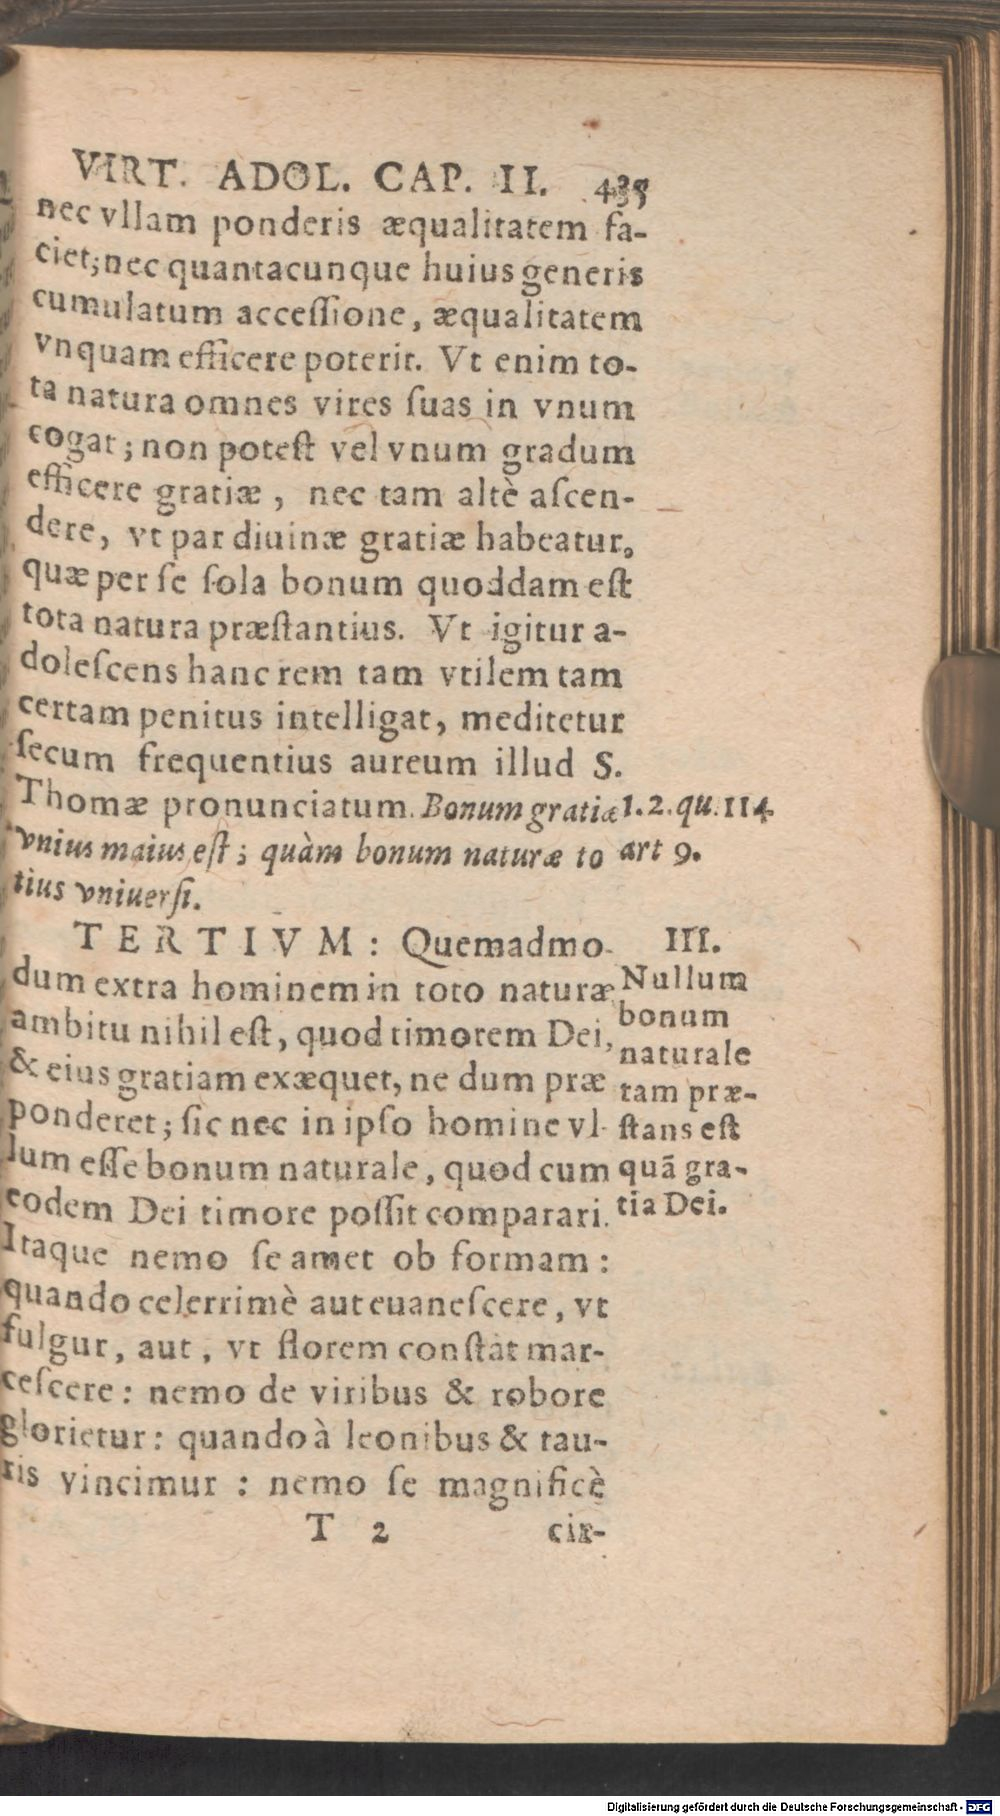 VIRT. ADOL. CAP. II. 435
nec vllam ponderis æqualitatem fa-
ciet; nec quantacunque huius generis
cumulatum accessione, æqualitatem
vnquam efficere poterit. Vt enim to-
ta natura omnes vires suas in vnum
cogat; non potest vel vnum gradum
efficere gratiæ, nec tam altè ascen-
dere, vt par diuinæ gratiæ habeatur,
quæ per se sola bonum quoddam est
tota natura præstantius. Vt igitur a-
dolescens hanc rem tam vtilem tam
certam penitus intelligat, meditetur
secum frequentius aureum illud S.
Thomæ pronunciatum. Bonum gratiæ
vnius maius est; quàm bonum naturæ to
tius vniuersi.
1.2.qu.114
art 9.
TERTIVM: Quemadmo-
dum extra hominem in toto naturæ
ambitu nihil est, quod timorem Dei,
& eius gratiam exæquet, ne dum præ
ponderet; sic nec in ipso homine vl-
lum esse bonum naturale, quod cum
eodem Dei timore possit comparari.
Itaque nemo se amet ob formam:
quando celerrimè aut euanescere, vt
fulgur, aut, vt florem constat mar-
cescere: nemo de viribus & robore
glorietur: quando à leonibus & tau-
ris vincimur: nemo se magnificè
III.
Nullum
bonum
naturale
tam præ-
stans est
quã gra-
tia Dei.
T 2 cir-
Digitalisierung gefördert durch die Deutsche Forschungsgemeinschaft - DFG